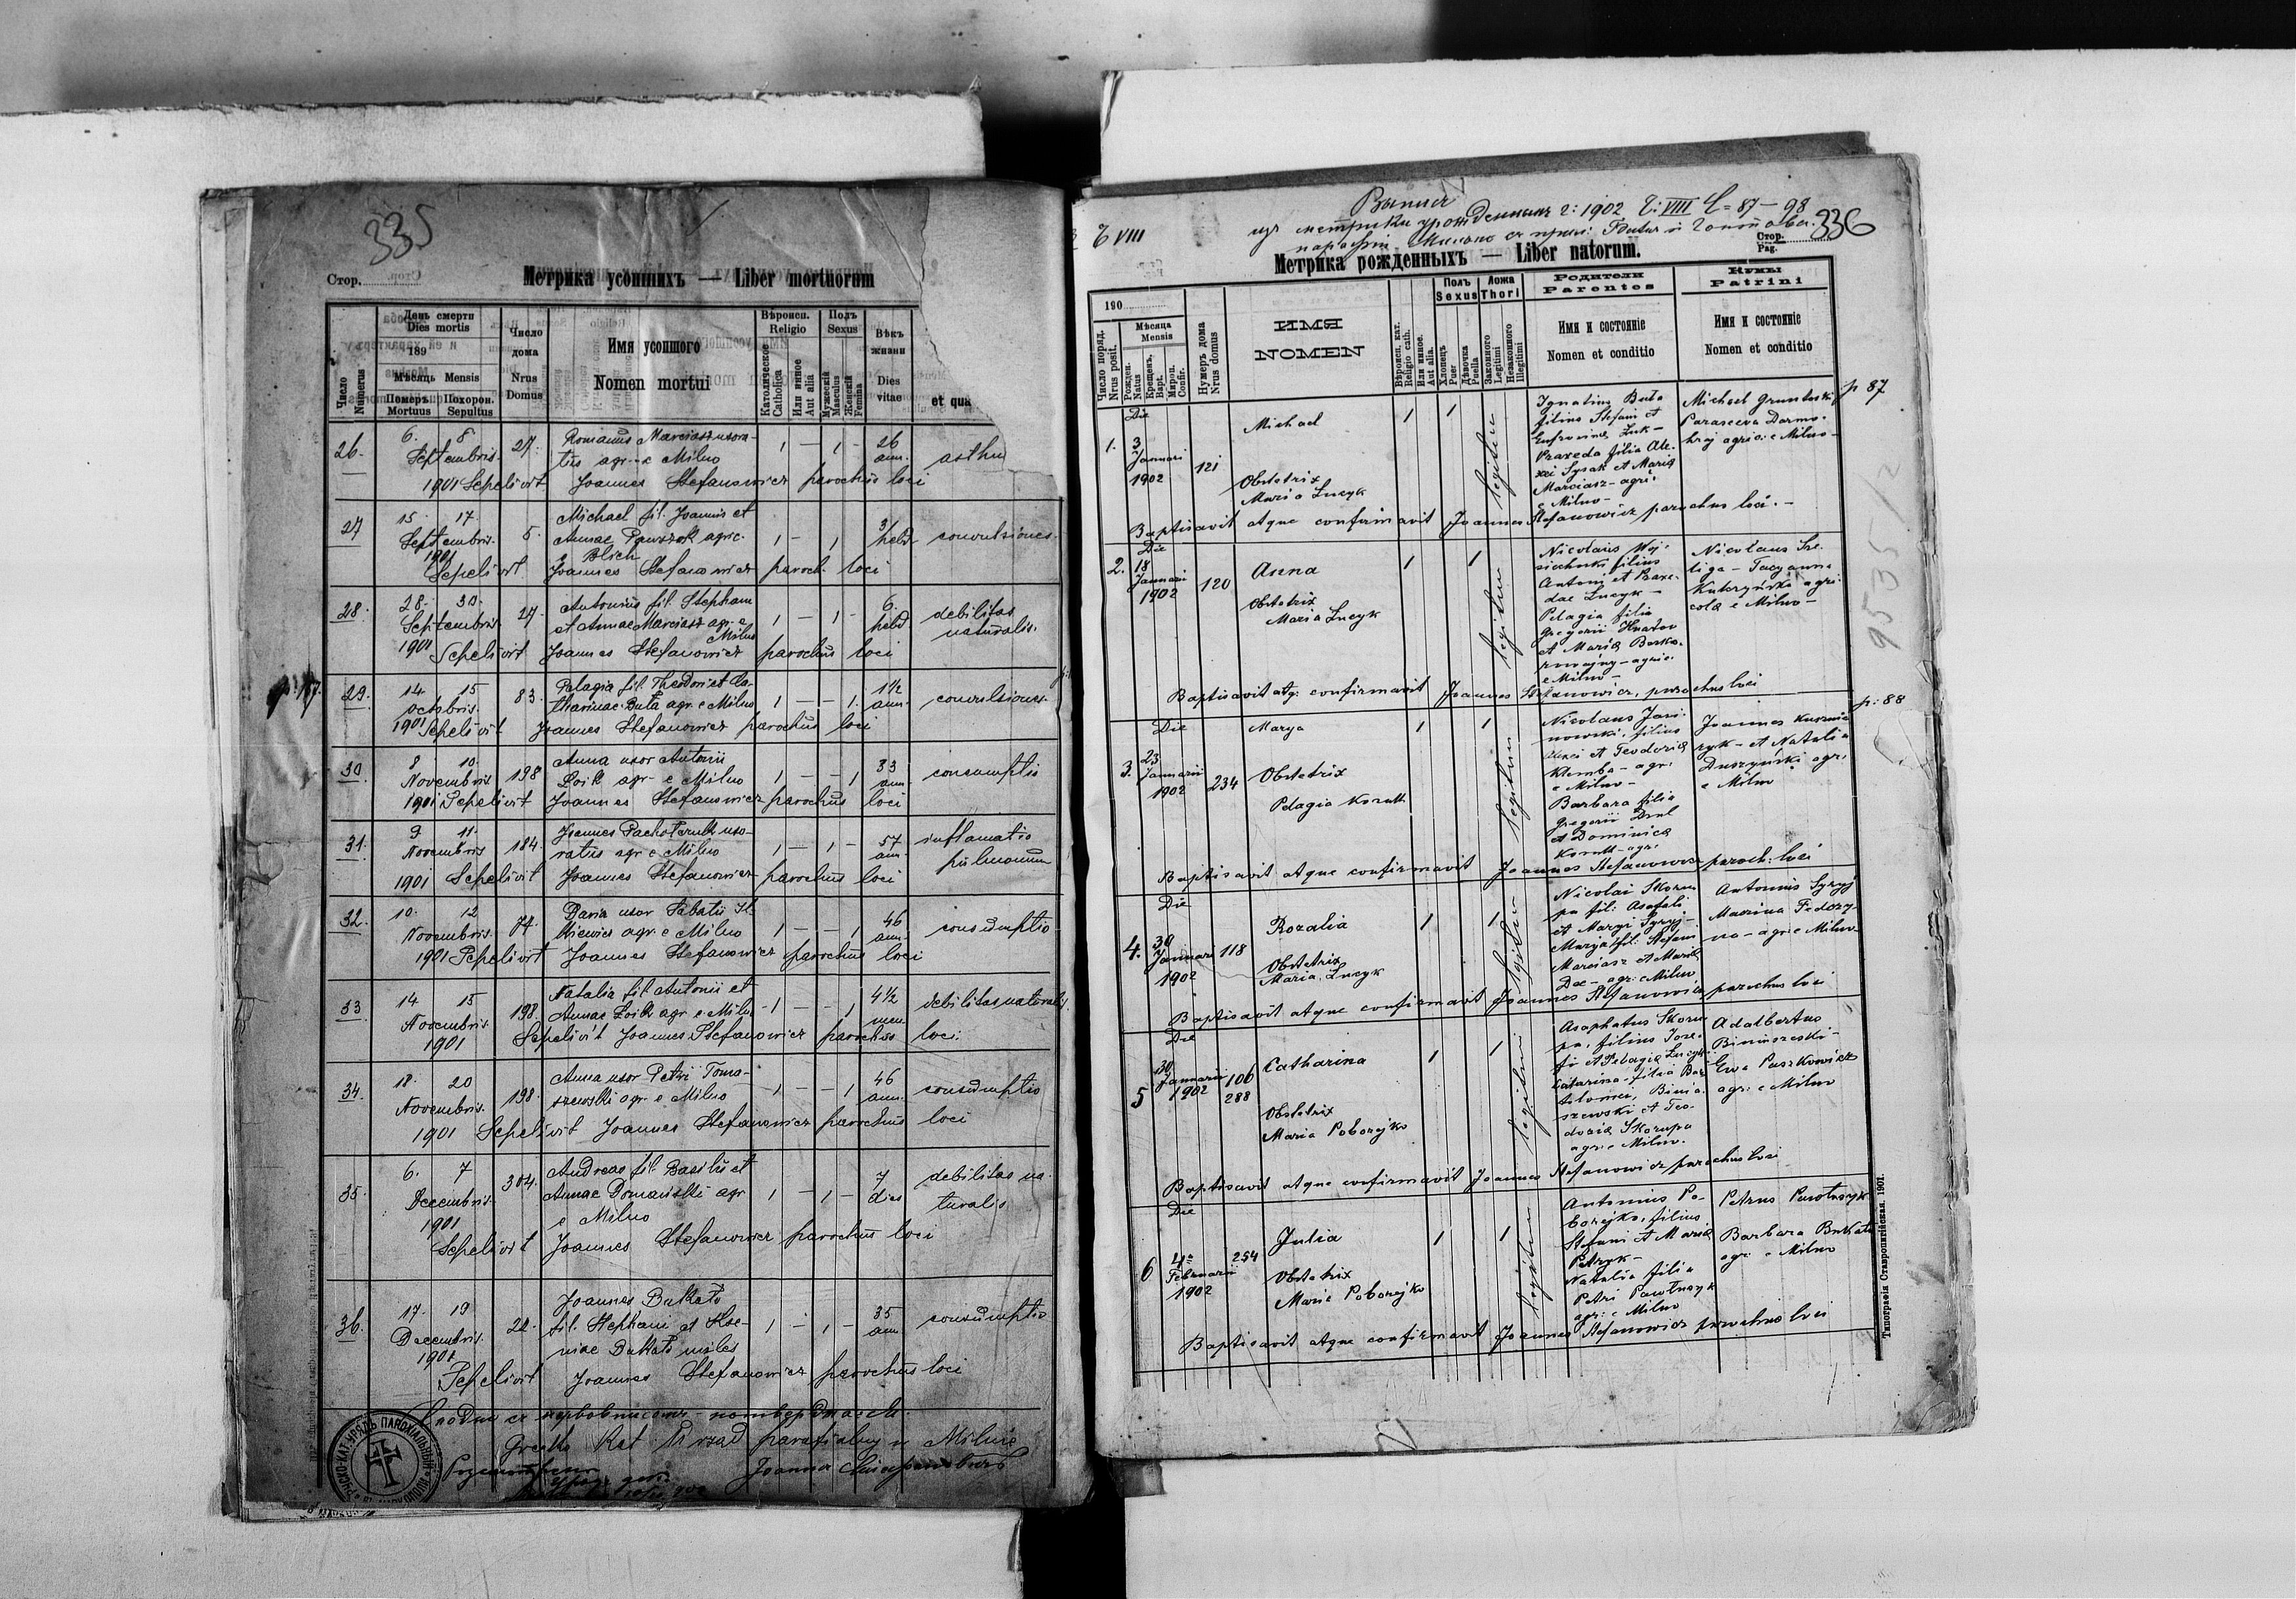 335
Стор.
Метрика усопшихъ — Liber mortuorum
Число
Numerus
День смерти
Dies mortis
189
Мѣсяць Mensis
Померъ
Mortuus
Похорон.
Sepultus
Число
дома
Nrus
Domus
Имя усопшого
Nomen mortui
Вѣроисп.
Religio
Католическое
Catholica
Или иное
Aut alia
Полъ
Sexus
Мужескій
Masculus
Женскій
Femina
Вѣкъ
жизни
Dies
vitae
et qua
26. 6. 8 Septembris 1901 27. Romanus Marciasz uxora-
tus agr. e Milno 1 — 1 — 26 ann.
Sepelivit Joannes Stefanowicz parochus loci
27 15. 17. Septembris. 1901 5. Michael fil. Joannis et
Annae agric.
1 — 1 3/ hebd convulsiones.
Sepelivit Joannes Stefanowicz paroch. loci
28. 28. 30. Septembris 1901 27. Antonius fil. Stephani
et Annae Marciasz agr. e
Milno 1 — 1 — 6. hebd debilitas
naturalis.
Sepelivit Joannes Stefanowicz parochus loci
29. 14 15 octobris. 1901 83. Pelagia fil. Theodori et Ca-
tharinae Buta agr. e Milno 1 — — 1. 1½ ann. convulsiones.
Sepelivit Joannes Stefanowicz parochus loci
30. 8 10. Novembris 1901 198 Anna uxor Antonii
Zoik agr. e Milno 1 — — 1 33 ann. consumptio
Sepelivit Joannes Stefanowicz parochus loci
31. 9 11. Novembris 1901 184. Joannes uxo-
ratus agr. e Milno 1 — 1 — 57 ann. inflamatio
pulmonum
Sepelivit Joannes Stefanowicz parochus loci
32. 10. 12 Novembris. 1901 74. Daria uxor
agr. e Milno 1 — — 1 46 ann. consumptio
Sepelivit Joannes Stefanowicz parochus loci
33 14 15 Novembris. 1901 198. Natalia fil. Antonii et
Annae Zoik agr. e Milno 1 — — 1 4½ men. debilitas naturalis
Sepelivit Joannes Stefanowicz parochus loci.
34. 18. 20 Novembris. 1901 198. Anna uxor Petri Toma-
szewski agr. e Milno 1 — — 1 46 ann. consumptio
Sepelivit Joannes Stefanowicz parochus loci
35. 6. 7 Decembris. 1901 304. Andreas fil. Basilii et
Annae Domański agr.
e Milno 1 — 1 — 7 dies debilitas na-
turalis
Sepelivit Joannes Stefanowicz parochus loci
36. 17. 19 Decembris. 1901 22. Joannes Bukato
fil. Stephani et Xe-
niae Bukato miles 1 — 1 — 35 ann consumptio
Sepelivit Joannes Stefanowicz parochus loci
Grecko Kat. Urząd parafialny w Milnie
336
Ч VIII
Выпись
изъ метрики урожденныхъ г: 1902 Ч: VIII С= 87 — 98
Стор.
Pag.
Метрика рожденныхъ — Liber natorum.
190
Число поряд.
Nrus posit.
Мѣсяца
Mensis
Рожден.
Natus
Крещенъ.
Bapt.
Мѵроп.
Confir.
Нумеръ дома
Nrus domus
ИМЯ
NOMEN
Вѣроисп. кат.
Religio cath.
Или инное.
Aut alia.
Полъ
Sexus
Хлопець
Puer
Дѣвочка
Puella
Ложа
Thori
Законного
Legitimi
Незаконного
Illegitimi
Родители
Parentes
Имя и состоянie
Nomen et conditio
Кумы
Patrini
Имя и состоянie
Nomen et conditio
p 87
1. Die 3 Januari 1902 121 Michael
Obstetrix
Maria Łucyk
1 1 legitimi
Ignatius Buta
filius Stefani et
Eufrosina Łuk-
Praxeda filia Ale-
xei Sysak et Maria
Marciasz - agri.
e Milno -
Michael Gruntowski
Parasceva Darmo-
hraj agric. e Milno -
Baptisavit atque confirmavit Joannes Stefanowicz parochus loci. -
2. Die 18 Januari 1902 120 Anna
Obstetrix
Maria Łucyk
1 1 legitimi
filius
Antoni et Praxe-
dae Łucyk -
Pelagia filia
Gregorii
et Maria
agric.
e Milno -
Nicolaus Sze-
liga - Tacyanna
agri-
cola e Milno -
Baptisavit atq: confirmavit Joannes Stefanowicz, parochus loci
p: 88
3. Die 23 Januarii 1902 234 Marya
Obstetrix
Pelagia Korutt
1 1 legitimi
Nicolaus Jasi-
nowski, filius
Alexi et Teodoria
Klemba - agr:
e Milno -
Barbara filia
Gregorii
et Dominica
Korutt - agr:
Joannes Kuszni-
ryk - et Natalia
Duszyński agr:
e Milno
Baptisavit atque confirmavit Joannes Stefanowicz paroch: loci
4. Die 30 Januari 1902 118 Rozalia
Obstetrix
Maria Łucyk
1 1 legitimi
Nicolai Skoru-
pa fil: Asafati
et Maryi Syryj -
Maryja fil: Stefani
Marciasz et Maria
agr: e Milno
Antonius Syryj
Maxima Fedory-
na - agr: e Milno
Baptisavit atque confirmavit Joannes Stefanowicz parochus loci
5 Die 30 Januarii 1902 106 288 Catharina
Obstetrix
Maria Poborejko
1 1 legitimi
Asaphatus Skoru-
pa, filius Jose-
fi et Pelagia Łucyk
Catarina filia Bar-
tilomei, Binia-
szewski et Teo-
doria Skorupa
agr: e Milno.
Adalbertus
Biniaszeski -
Ewa Paszkowicz
agr: e Milno
Baptisavit atque confirmavit Joannes Stefanowicz parochus loci
6 Die 4. Februarii 1902 254 Julia
Obstetrix
Maria Poborejko
1 1 legitimi
Antonius Po-
borejko, filius
Stefani et Maria
Petryk -
Natalia filia
Petri Pawłuszyk
agr: e Milno
Petrus Pawłuszyk
Barbara Bukata
agr: e Milno
Baptisavit atque confirmavit Joannes Stefanowicz parochus loci
Типографія Ставропигійская. 1901.
9535/2